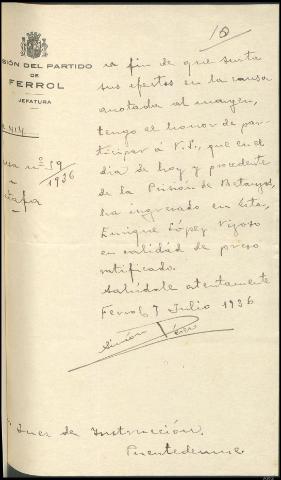 10
SIÓN DEL PARTIDO
DE
FERROL
JEFATURA
414
nº 59
1936
a fin de que surta
sus efectos en la causa
anotada al margen,
tengo el honor de par-
ticipar á V.S., que en el
dia de hoy y procedente
de la Prision de Betanzos,
ha ingresado en esta,
Enrique López Vizoso
en calidad de preso
ratificado.
Salúdole atentamente
Ferrol, 7 Julio 1936
Juez de Instrucción.
Puentedeume.